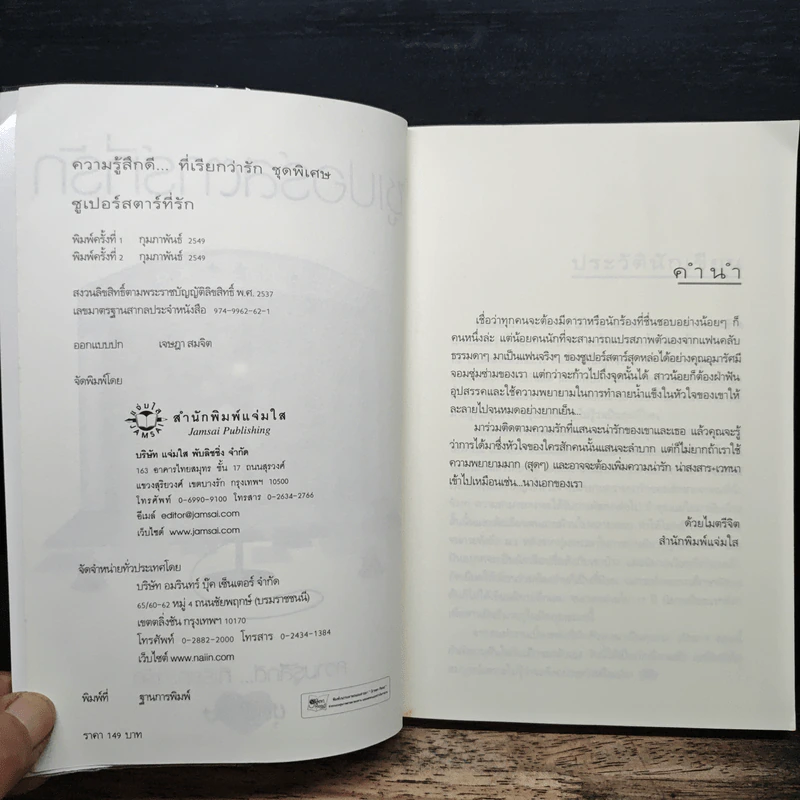 ความรู้สึกดี... ที่เรียกว่ารัก ชุดพิเศษ
ซูเปอร์สตาร์ที่รัก
พิมพ์ครั้งที่ 1 กุมภาพันธ์ 2549
พิมพ์ครั้งที่ 2 กุมภาพันธ์ 2549
สงวนลิขสิทธิ์ตามพระราชบัญญัติลิขสิทธิ์ พ.ศ. 2537
เลขมาตรฐานสากลประจำหนังสือ 974-9962-62-1
ออกแบบปก เจษฎา สมจิต
จัดพิมพ์โดย
แจ่มใส
JAMSAI
สำนักพิมพ์แจ่มใส
Jamsai Publishing
บริษัท แจ่มใส พับลิชชิ่ง จำกัด
163 อาคารไทยสมุทร ชั้น 17 ถนนสุรวงศ์
แขวงสุริยวงศ์ เขตบางรัก กรุงเทพฯ 10500
โทรศัพท์ 0-6990-9100 โทรสาร 0-2634-2766
อีเมล์ editor@jamsai.com
เว็บไซต์ www.jamsai.com
จัดจำหน่ายทั่วประเทศโดย
บริษัท อมรินทร์ บุ๊ค เซ็นเตอร์ จำกัด
65/60-62 หมู่ 4 ถนนชัยพฤกษ์ (บรมราชชนนี)
เขตตลิ่งชัน กรุงเทพฯ 10170
โทรศัพท์ 0-2882-2000 โทรสาร 0-2434-1384
เว็บไซต์ www.naiin.com
พิมพ์ที่ ฐานการพิมพ์
ราคา 149 บาท
คำนำ
เชื่อว่าทุกคนจะต้องมีดาราหรือนักร้องที่ชื่นชอบอย่างน้อยๆ ก็
คนหนึ่งล่ะ แต่น้อยคนนักที่จะสามารถแปรสภาพตัวเองจากแฟนคลับ
ธรรมดาๆ มาเป็นแฟนจริงๆ ของซูเปอร์สตาร์สุดหล่อได้อย่างคุณอุมารัศมี
จอมซุ่มซ่ามของเรา แต่กว่าจะก้าวไปถึงจุดนั้นได้ สาวน้อยก็ต้องฝ่าฟัน
อุปสรรคและใช้ความพยายามในการทำลายน้ำแข็งในหัวใจของเขาให้
ละลายไปจนหมดอย่างยากเย็น...
มาร่วมติดตามความรักที่แสนจะน่ารักของเขาและเธอ แล้วคุณจะรู้
ว่าการได้มาซึ่งหัวใจของใครสักคนนั้นแสนจะลำบาก แต่ก็ไม่ยากถ้าเราใช้
ความพยายามมาก (สุดๆ) และอาจจะต้องเพิ่มความน่ารัก น่าสงสาร+เวทนา
เข้าไปเหมือนเช่น...นางเอกของเรา
ด้วยไมตรีจิต
สำนักพิมพ์แจ่มใส